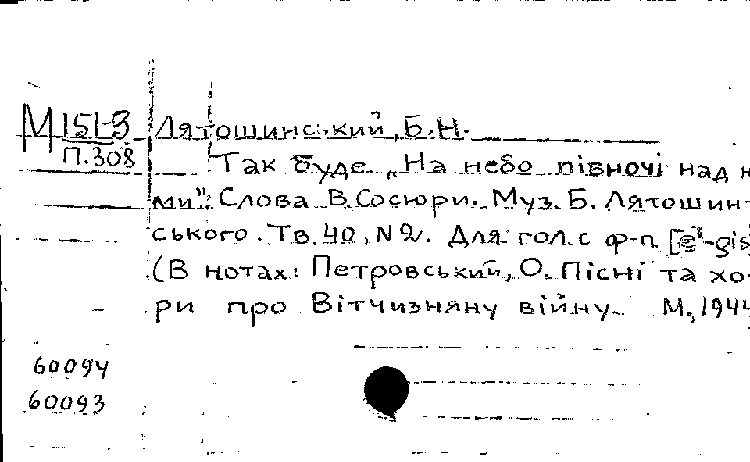 М 151-3 Лятошинський, Б.Н.
П.308 Так буде „На небо півночі над н
ми". Слова В.Сосюри. Муз. Б. Лятошин-
ського. Тв. 40, N2. Для гол. с ф-п. [e¹-gis
(В нотах: Петровський, О. Пісні та хо-
ри про Вітчизняну війну. М., 1944
60094
60093